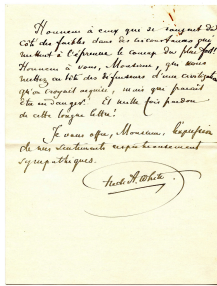 Honneur à ceux qui se rangent du
côté des faibles dans des circonstances qui
mettent à l'épreuve le courage du plus fort!
Honneur à vous, Monsieur, que vous
mettez en tête des défenseurs d'une civilisation
qu'on croyait acquise, mais que paraît
être en danger! Et mille fois pardon
de cette longue lettre!
Je vous offre, Monsieur, l'expression
de mes sentiments respectueusement
sympathiques.
Fredk A. White.